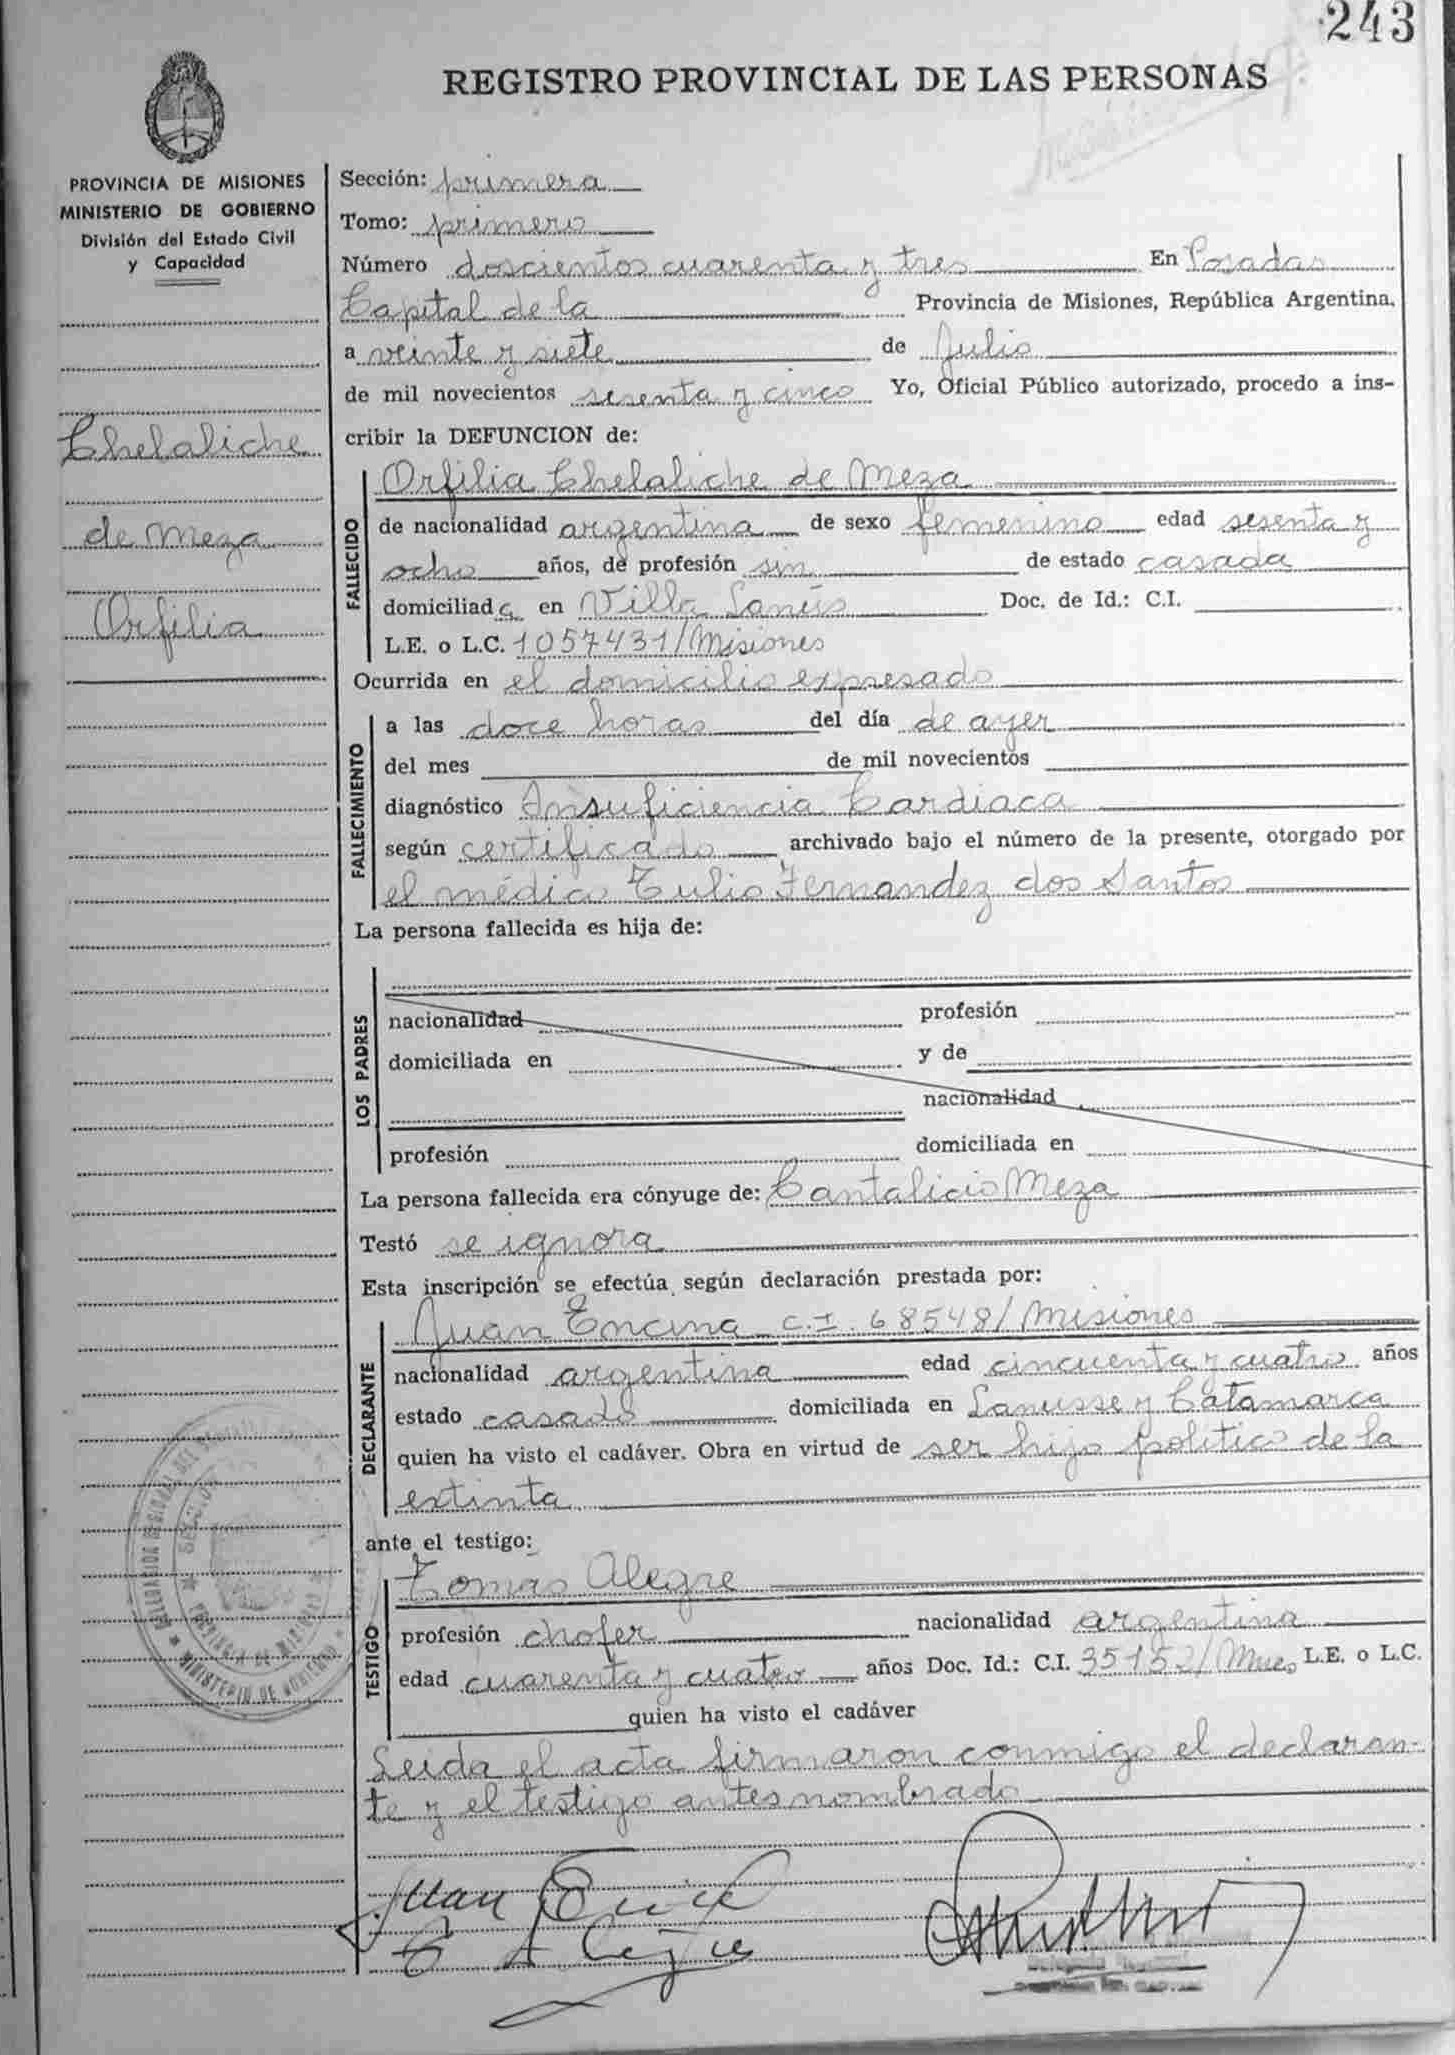 243
REGISTRO PROVINCIAL DE LAS PERSONAS
PROVINCIA DE MISIONES
MINISTERIO DE GOBIERNO
División del Estado Civil
y Capacidad
Chelaliche
de Meza
Orfilia
Sección: primera
Tomo: primero
Número doscientos cuarenta y tres En Posadas
Capital de la Provincia de Misiones, República Argentina,
a veinte y siete de Julio
de mil novecientos sesenta y cinco Yo, Oficial Público autorizado, procedo a ins-
cribir la DEFUNCION de:
FALLECIDO
Orfilia Chelaliche de Meza
de nacionalidad argentina de sexo femenino edad sesenta y
ocho años, de profesión sin de estado casada
domiciliada en Villa Lanús Doc. de Id.: C.I.
L.E. o L.C. 1057431/Misiones
Ocurrida en el domicilio expresado
FALLECIMIENTO
a las doce horas del día de ayer
del mes de mil novecientos
diagnóstico Insuficiencia Cardiaca
según certificado archivado bajo el número de la presente, otorgado por
el médico Tulio Fernandez dos Santos
La persona fallecida es hija de:
LOS PADRES
nacionalidad profesión
domiciliada en y de
nacionalidad
profesión domiciliada en
La persona fallecida era cónyuge de: Cantalicio Meza
Testó se ignora
Esta inscripción se efectúa según declaración prestada por:
DECLARANTE
Juan Encina C.I. 68548/Misiones
nacionalidad argentina edad cincuenta y cuatro años
estado casado domiciliada en Lanusse y Catamarca
quien ha visto el cadáver. Obra en virtud de ser hijo politico de la
extinta
ante el testigo:
TESTIGO
Tomas Alegre
profesión chofer nacionalidad argentina
edad cuarenta y cuatro años Doc. Id.: C.I. 35152/Mnes L.E. o L.C.
quien ha visto el cadáver
Leida el acta firmaron conmigo el declaran-
te y el testigo antes nombrado
Juan Encina
T Alegre
PROVINCIA DE MISIONES
MINISTERIO DE GOBIERNO